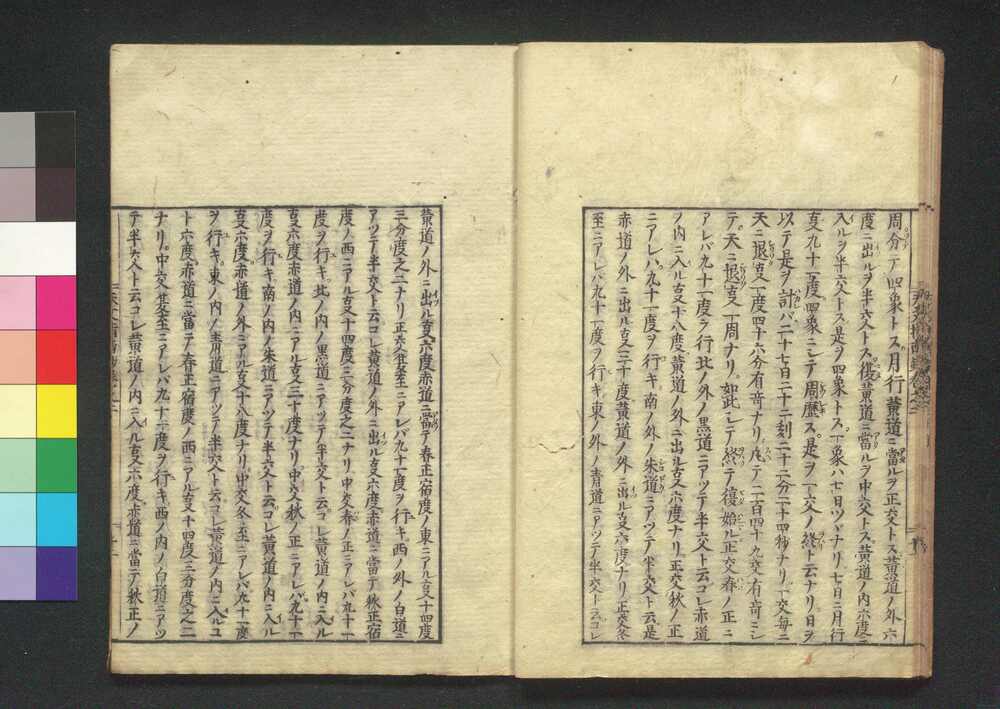 周分〆四象トス月行黄道ニ當ルヲ正交トス黄道ノ外六
度ニ出ルヲ半交トス復黄道ニ當ルヲ中交トス黄道ノ内六度ニ
入ルヲ半交トス是ヲ四象トス一象ハ七日ツヽナリ七日ニ月行
亥九十一度四象ニシテ周歴ス是ヲ一交ノ終ト云ナリ日ヲ
以テ是ヲ計バ二十七日二十二刻二十二分二十四秒ナリ一交毎ニ
天ニ退亥一度四十六分有奇ナリ凡テ二百四十九交有奇ニシ
テ天ニ退亥一周ナリ如此シテ終テ復始ル正交春ノ正ニ
アレバ九十一度ヲ行北ノ外ノ黒道ニアツテ半交ト云コレ赤道
ノ内ニ入ル亥十八度黄道ノ外ニ出ル亥六度ナリ正交秋ノ正
ニアレバ九十一度ヲ行キ南ノ外ノ朱道ニアツテ半交ト云是
赤道ノ外ニ出ル亥三十度黄道ノ外ニ出ル亥六度ナリ正交冬
至ニアレバ九十一度ヲ行キ東ノ外ノ青道ニアツテ半交ト云コレ
黄道ノ外ニ出ル亥六度赤道ニ當テ春正宿度ノ東ニアル亥十四度
三分度之二ナリ正交夏至ニアレバ九十一度ヲ行キ西ノ外ノ白道ニ
アツテ半交ト云コレ黄道ノ外ニ出ル亥六度赤道ニ當テ秋正宿
度ノ西ニアル亥十四度三分度之二ナリ中交春ノ正ニアレバ九十一
度ヲ行キ北ノ内ノ黒道ニアツテ半交ト云コレ黄道ノ内ニ入ル
亥六度赤道ノ内ニアル亥三十度ナリ中交秋ノ正ニアレバ九十一
度ヲ行キ南ノ内ノ朱道ニアツテ半交ト云コレ黄道ノ内ニ入ル
亥六度赤道ノ外ニアル亥十八度ナリ中交冬至ニアレバ九十一度
ヲ行キ東ノ内ノ青道ニアツテ半交ト云コレ黄道ノ内ニ入ルコ
ト六度赤道ニ當テ春正宿度ノ西ニアル亥十四度三分度之二
ナリ中交夏至ニアレバ九十一度ヲ行キ西ノ内ノ白道ニアツ
テ半交ト云コレ黄道ノ内ニ入ル亥六度赤道ニ當テ秋正ノ